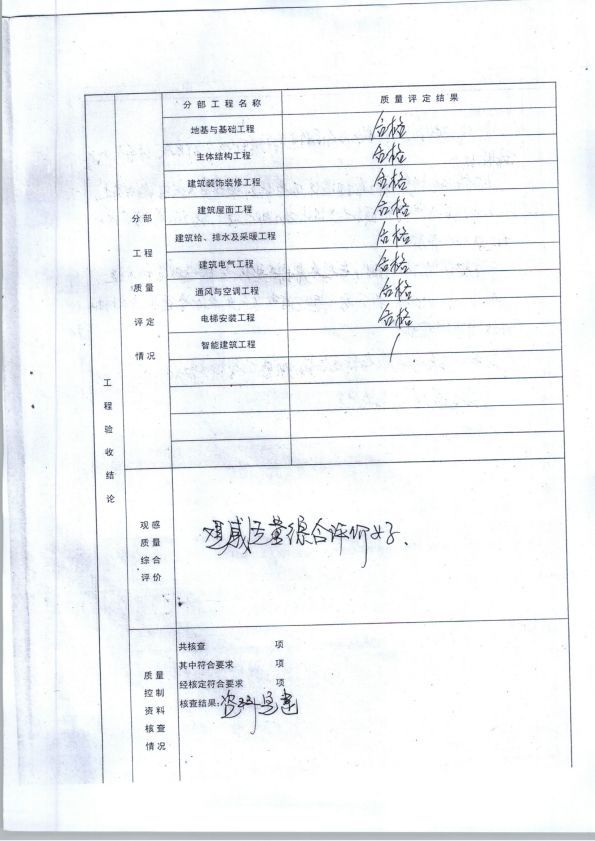 分部工程名称 质量评定结果
地基与基础工程 合格
主体结构工程 合格
建筑装饰装修工程 合格
建筑屋面工程 合格
建筑给、排水及采暖工程 合格
建筑电气工程 合格
通风与空调工程 合格
电梯安装工程 合格
智能建筑工程 /
分部
工程
质量
评定
情况
工程验收结论
观感
质量
综合
评价
观感质量综合评价好.
质量
控制
资料
核查
情况
共核查 项
其中符合要求 项
经核定符合要求 项
核查结果:资料